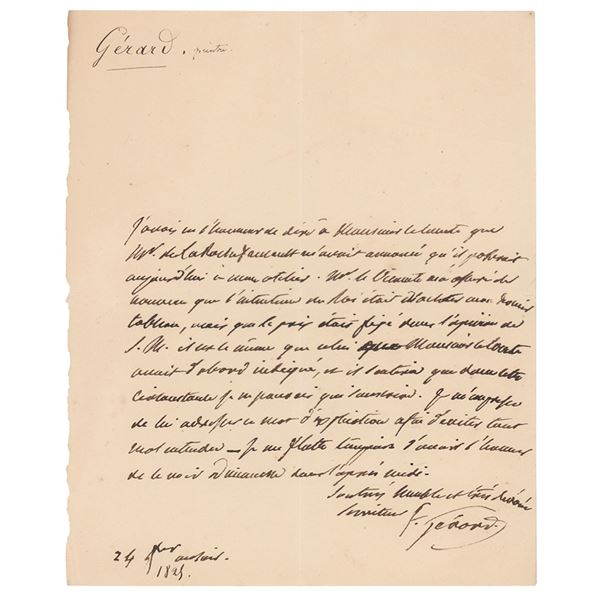 Gérard, peintre.
J'avais eu l'honneur de dire à Monsieur le Comte que
Mr. de La Rochefoucault m'avait annoncé qu'il passerait
aujourd'hui à mon atelier. Mr. le Vicomte m'a assuré de
nouveau que l'intention du Roi était d'acheter mon dernier
tableau, mais que le prix était fixé dans l'opinion de
S. M. il est le même que celui Monsieur le Comte
avait d'abord indiqué, et il sentira que dans cette
circonstance je ne pouvais que souscrire. Je m'empresse
de lui adresser ce mot d'explication afin d'éviter tout
mal entendu — je me flatte toujours d'avoir l'honneur
de le voir Dimanche dans l'après midi.
Son très humble et très dévoué
serviteur F. Gérard.
24
1825.